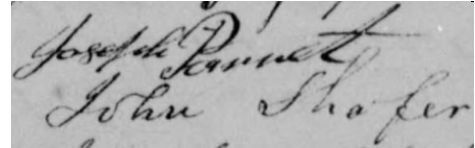 Joseph Pannet
John Shafer